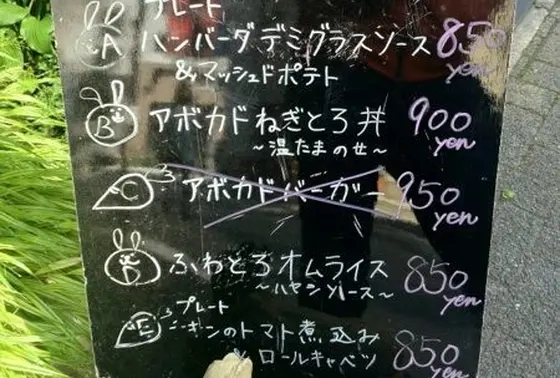 プレート
A ハンバーグデミグラスソース 850
&マッシュドポテト yen
B アボカドねぎとろ丼 900
～温たまのせ～ yen
C アボカドバーガー 950
yen
D ふわとろオムライス 850
～ハヤシソース～ yen
プレート
E チキンのトマト煮込み
ロールキャベツ 850
yen